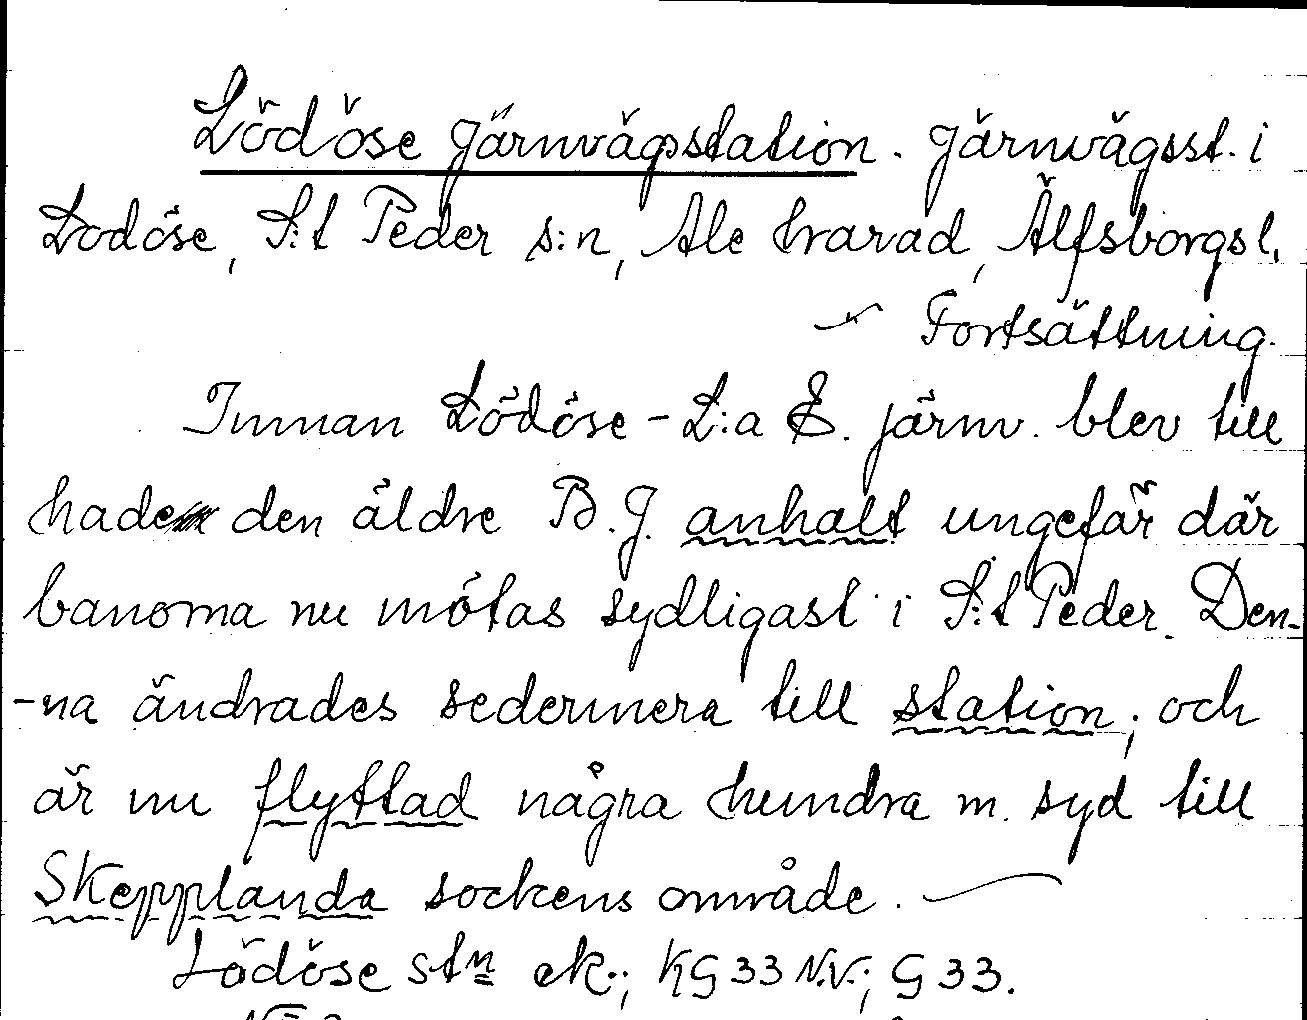 Lödöse järnvägsstation. järnvägsst. i
Lödöse, S:t Peder s:n, Ale härad, Älfsborgs l.
Fortsättning.
Innan Lödöse - L:a E. järnv. blev till
hade den äldre B.J. anhalt ungefär där
banorna nu mötas sydligast i S:t Peder. Den-
-na ändrades sedermera till station, och
är nu flyttad några hundra m. syd till
Skepplanda sockens område.
Lödöse stn ek.; KG 33 N.V.; G 33.